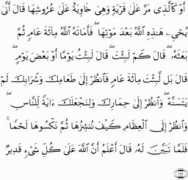 أَوْ كَٱلَّذِى مَرَّ عَلَىٰ قَرْيَةٍ وَهِىَ خَاوِيَةٌ عَلَىٰ عُرُوشِهَا قَالَ أَنَّىٰ
يُحْىِۦ هَٰذِهِ ٱللَّهُ بَعْدَ مَوْتِهَا ۖ فَأَمَاتَهُ ٱللَّهُ مِا۟ئَةَ عَامٍ ثُمَّ
بَعَثَهُۥ ۖ قَالَ كَمْ لَبِثْتَ ۖ قَالَ لَبِثْتُ يَوْمًا أَوْ بَعْضَ يَوْمٍ ۖ
قَالَ بَل لَّبِثْتَ مِا۟ئَةَ عَامٍ فَٱنظُرْ إِلَىٰ طَعَامِكَ وَشَرَابِكَ لَمْ
يَتَسَنَّهْ ۖ وَٱنظُرْ إِلَىٰ حِمَارِكَ وَلِنَجْعَلَكَ ءَايَةً لِّلنَّاسِ ۖ
وَٱنظُرْ إِلَى ٱلْعِظَامِ كَيْفَ نُنشِزُهَا ثُمَّ نَكْسُوهَا لَحْمًا ۚ
فَلَمَّا تَبَيَّنَ لَهُۥ قَالَ أَعْلَمُ أَنَّ ٱللَّهَ عَلَىٰ كُلِّ شَىْءٍ قَدِيرٌ